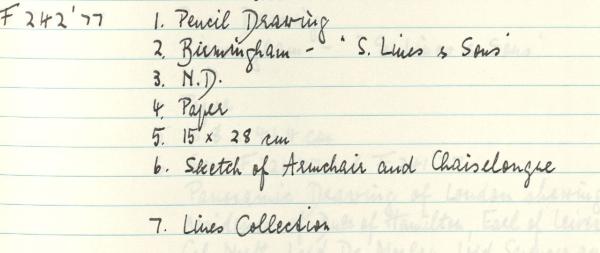 F 242'77 1. Pencil Drawing
2. Birmingham - 'S. Lines & Sons'
3. N.D.
4. Paper
5. 15 x 28 cm
6. Sketch of Armchair and Chaiselongue
7. Lines Collection